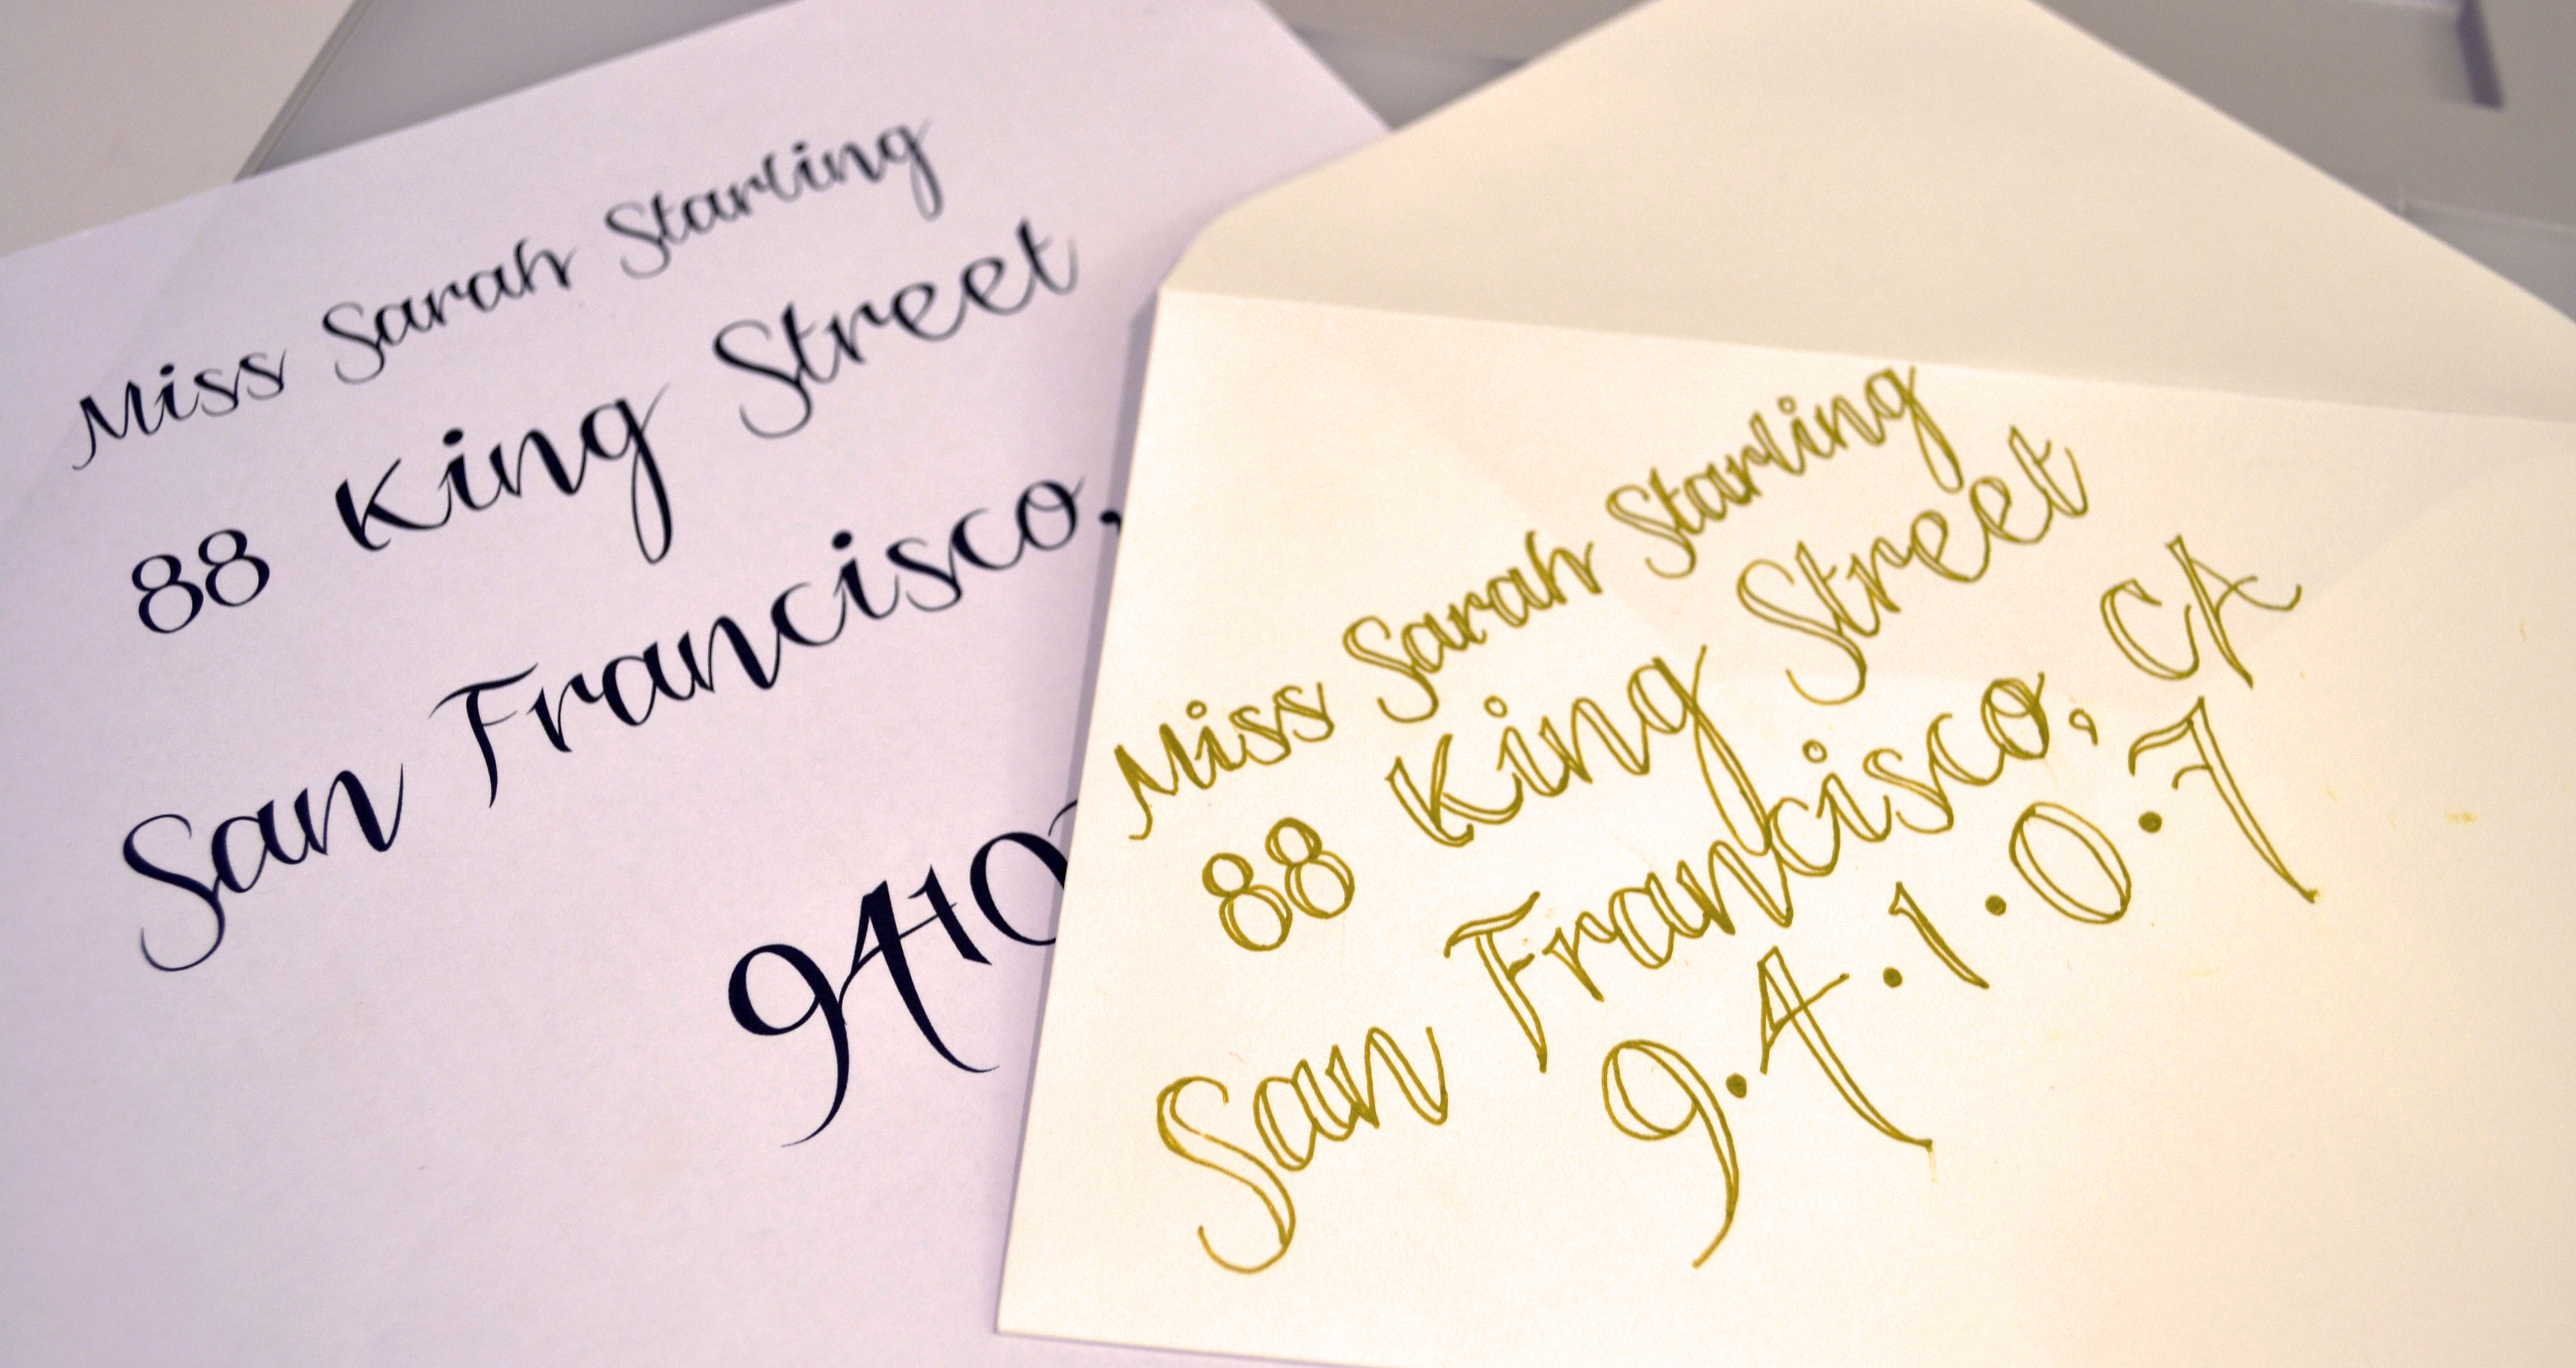 Miss Sarah Starling
88 King Street
San Francisco,
9410
Miss Sarah Starling
88 King Street
San Francisco, CA
9·4·1·0·7